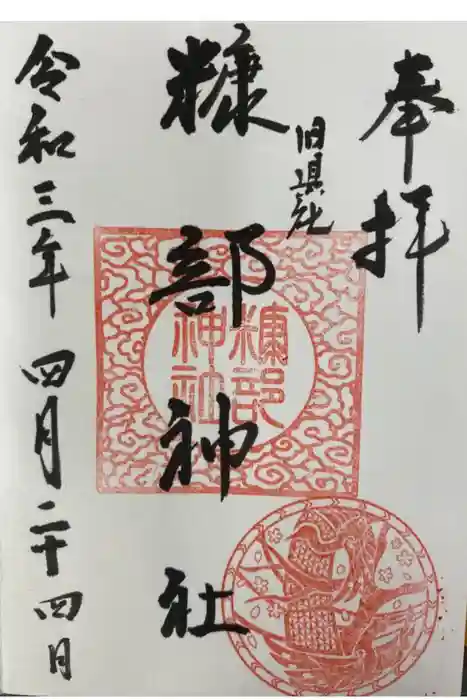 奉拝
旧県社
糠部神社
糠部
神社
令和三年四月二十四月